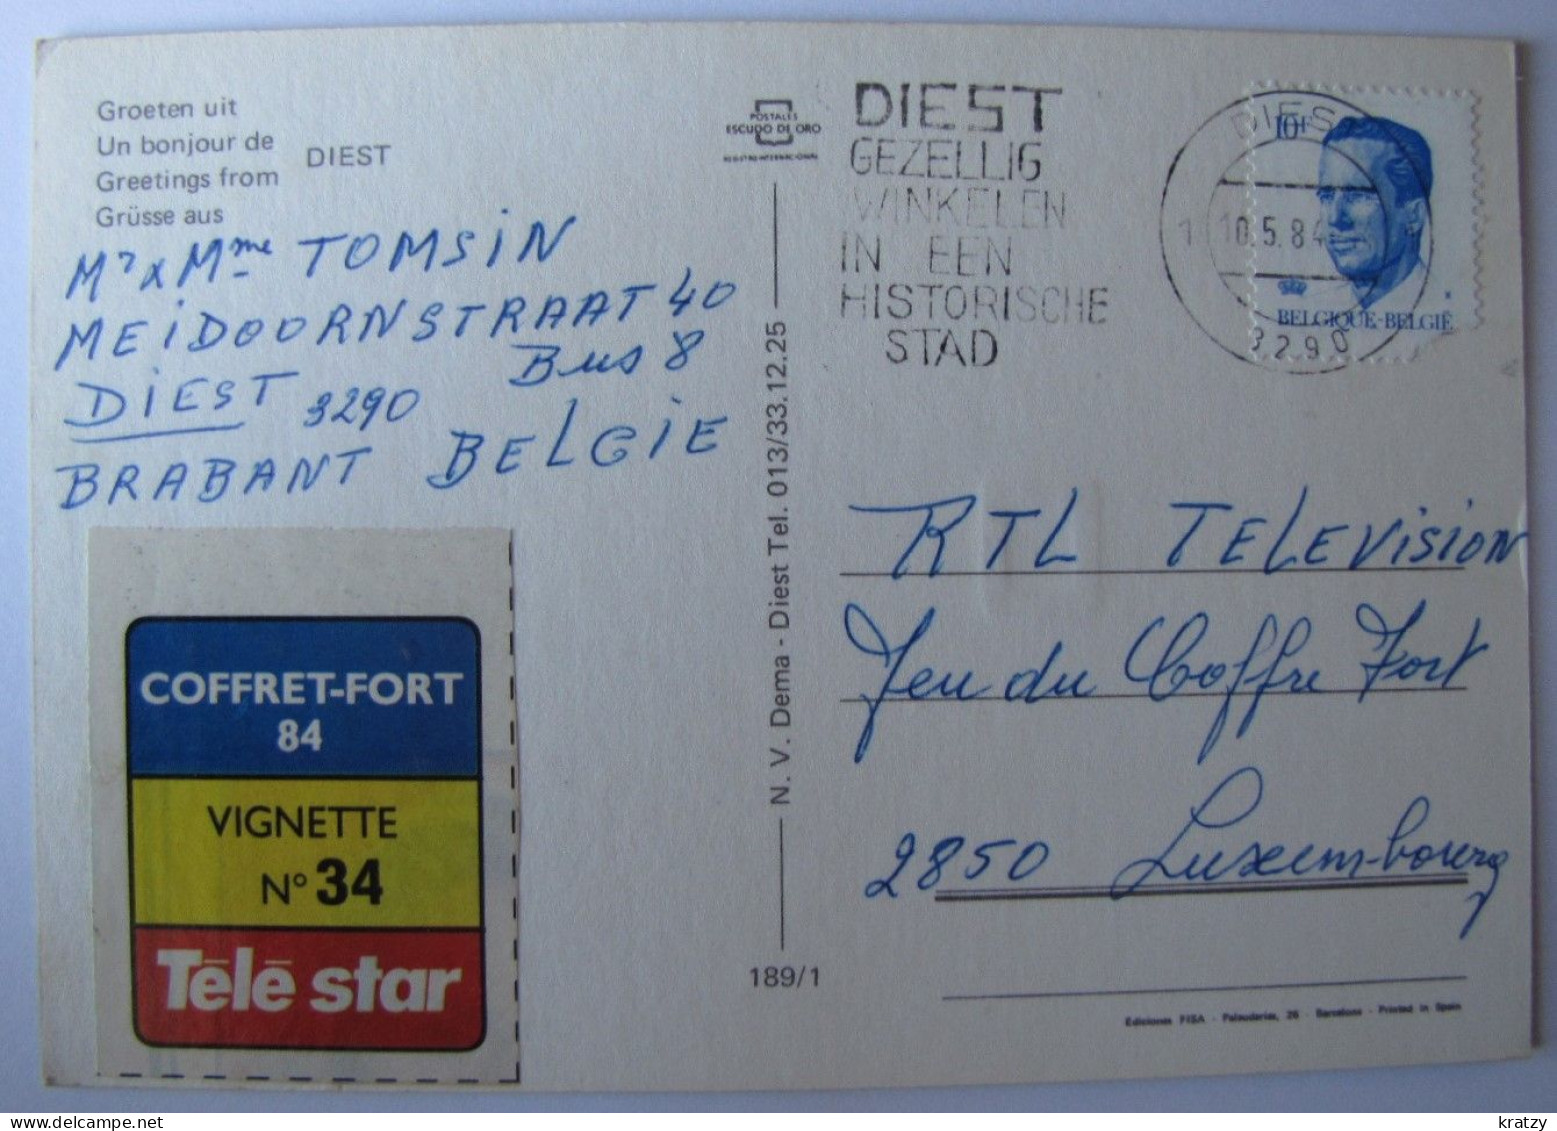 Groeten uit
Un bonjour de
Greetings from
Grüsse aus
DIEST
Mr & Mme TOMSiN
MEiDOORNSTRAAT 40
Bus 8
DiEST 3290
BRABANT BELGiE
COFFRET-FORT
84
VIGNETTE
N° 34
Télé star
POSTALES
ESCUDO DE ORO
REGISTRO INTERNACIONAL
N. V. Dema - Diest Tel. 013/33.12.25
189/1
DIEST
GEZELLIG
WINKELEN
IN EEN
HISTORISCHE
STAD
DIEST
10.5.84
3290
10F
BELGIQUE-BELGIË
RTL TELEViSiON
Jeu du Coffre Fort
2850 Luxembourg
Ediciones FISA - Palaudarias, 26 - Barcelona - Printed in Spain
kratzy